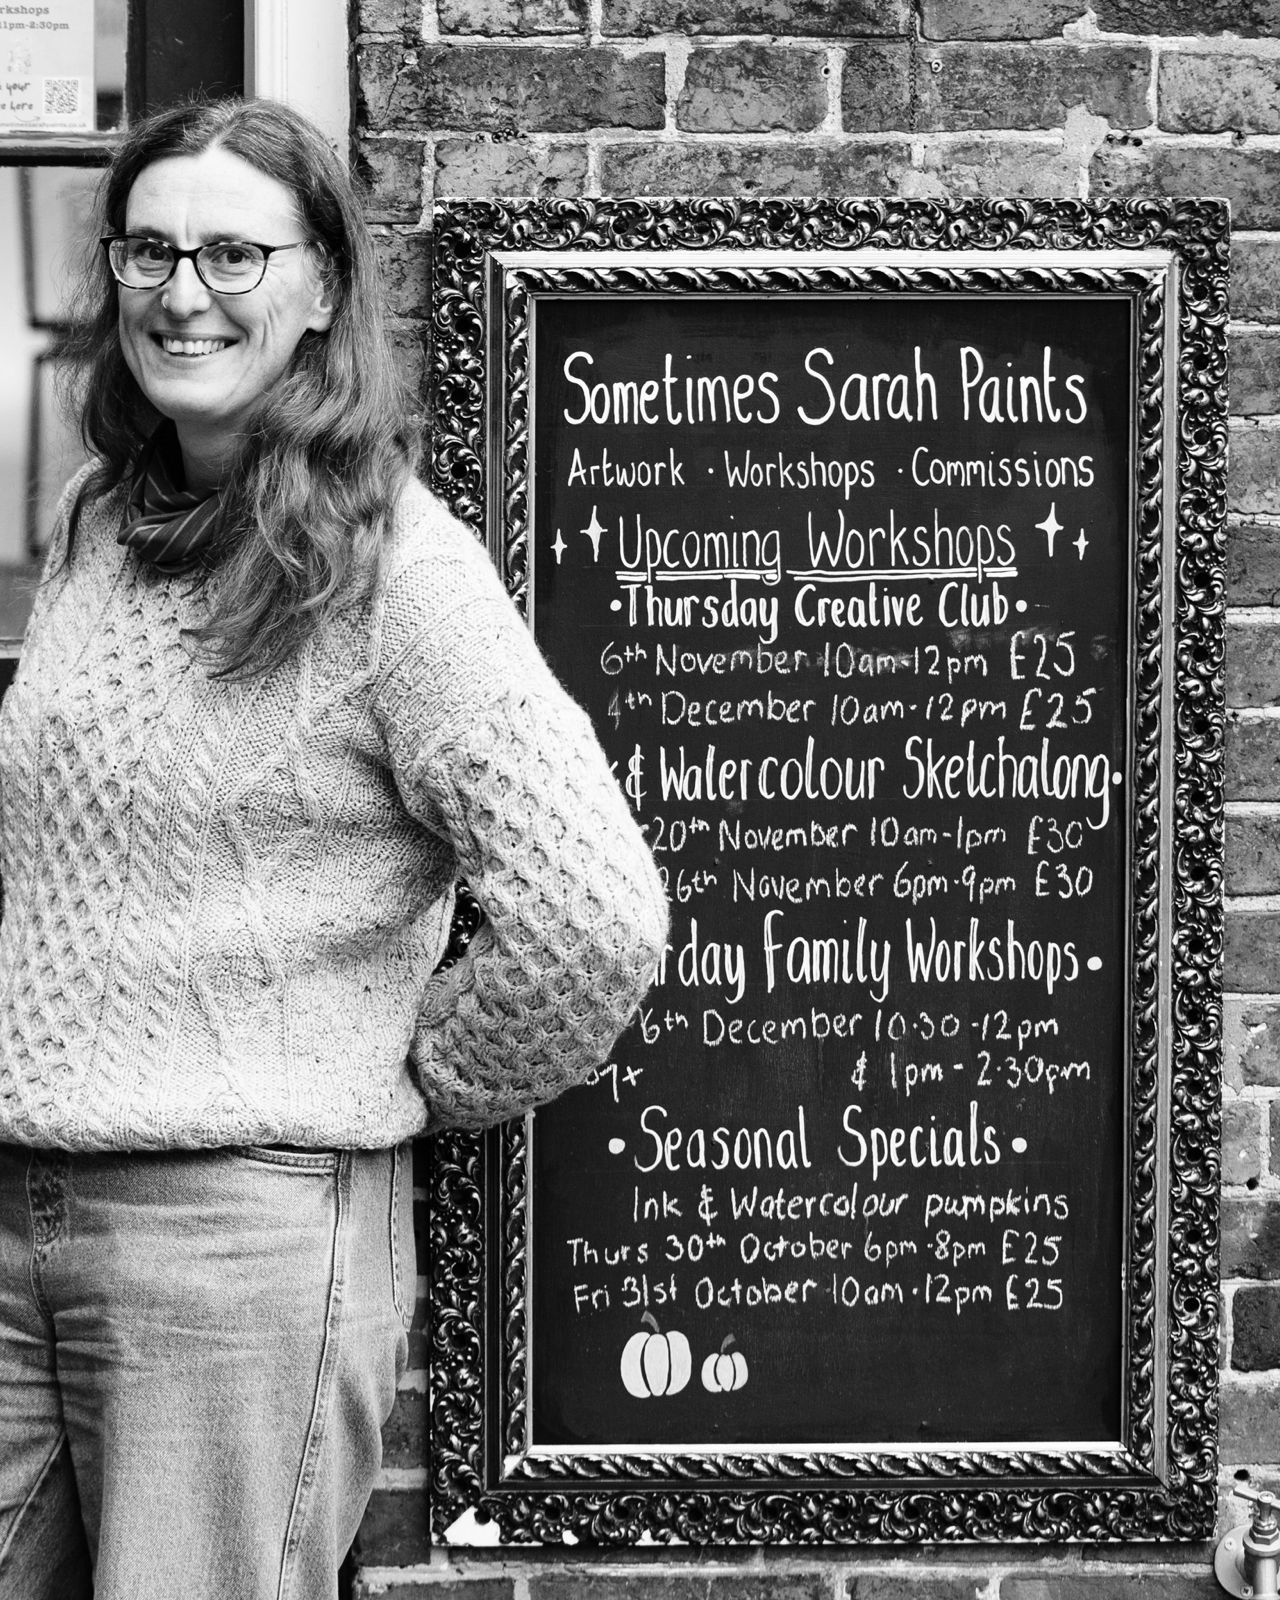 rkshops
11pm-2:30pm
your
e here
Sometimes Sarah Paints
Artwork · Workshops · Commissions
Upcoming Workshops
·Thursday Creative Club·
6th November 10am-12pm £25
4th December 10am-12pm £25
& Watercolour Sketchalong·
20th November 10am-1pm £30
26th November 6pm-9pm £30
rday Family Workshops·
6th December 10.30-12pm
& 1pm - 2.30pm
·Seasonal Specials·
Ink & Watercolour pumpkins
Thurs 30th October 6pm-8pm £25
Fri 31st October 10am-12pm £25